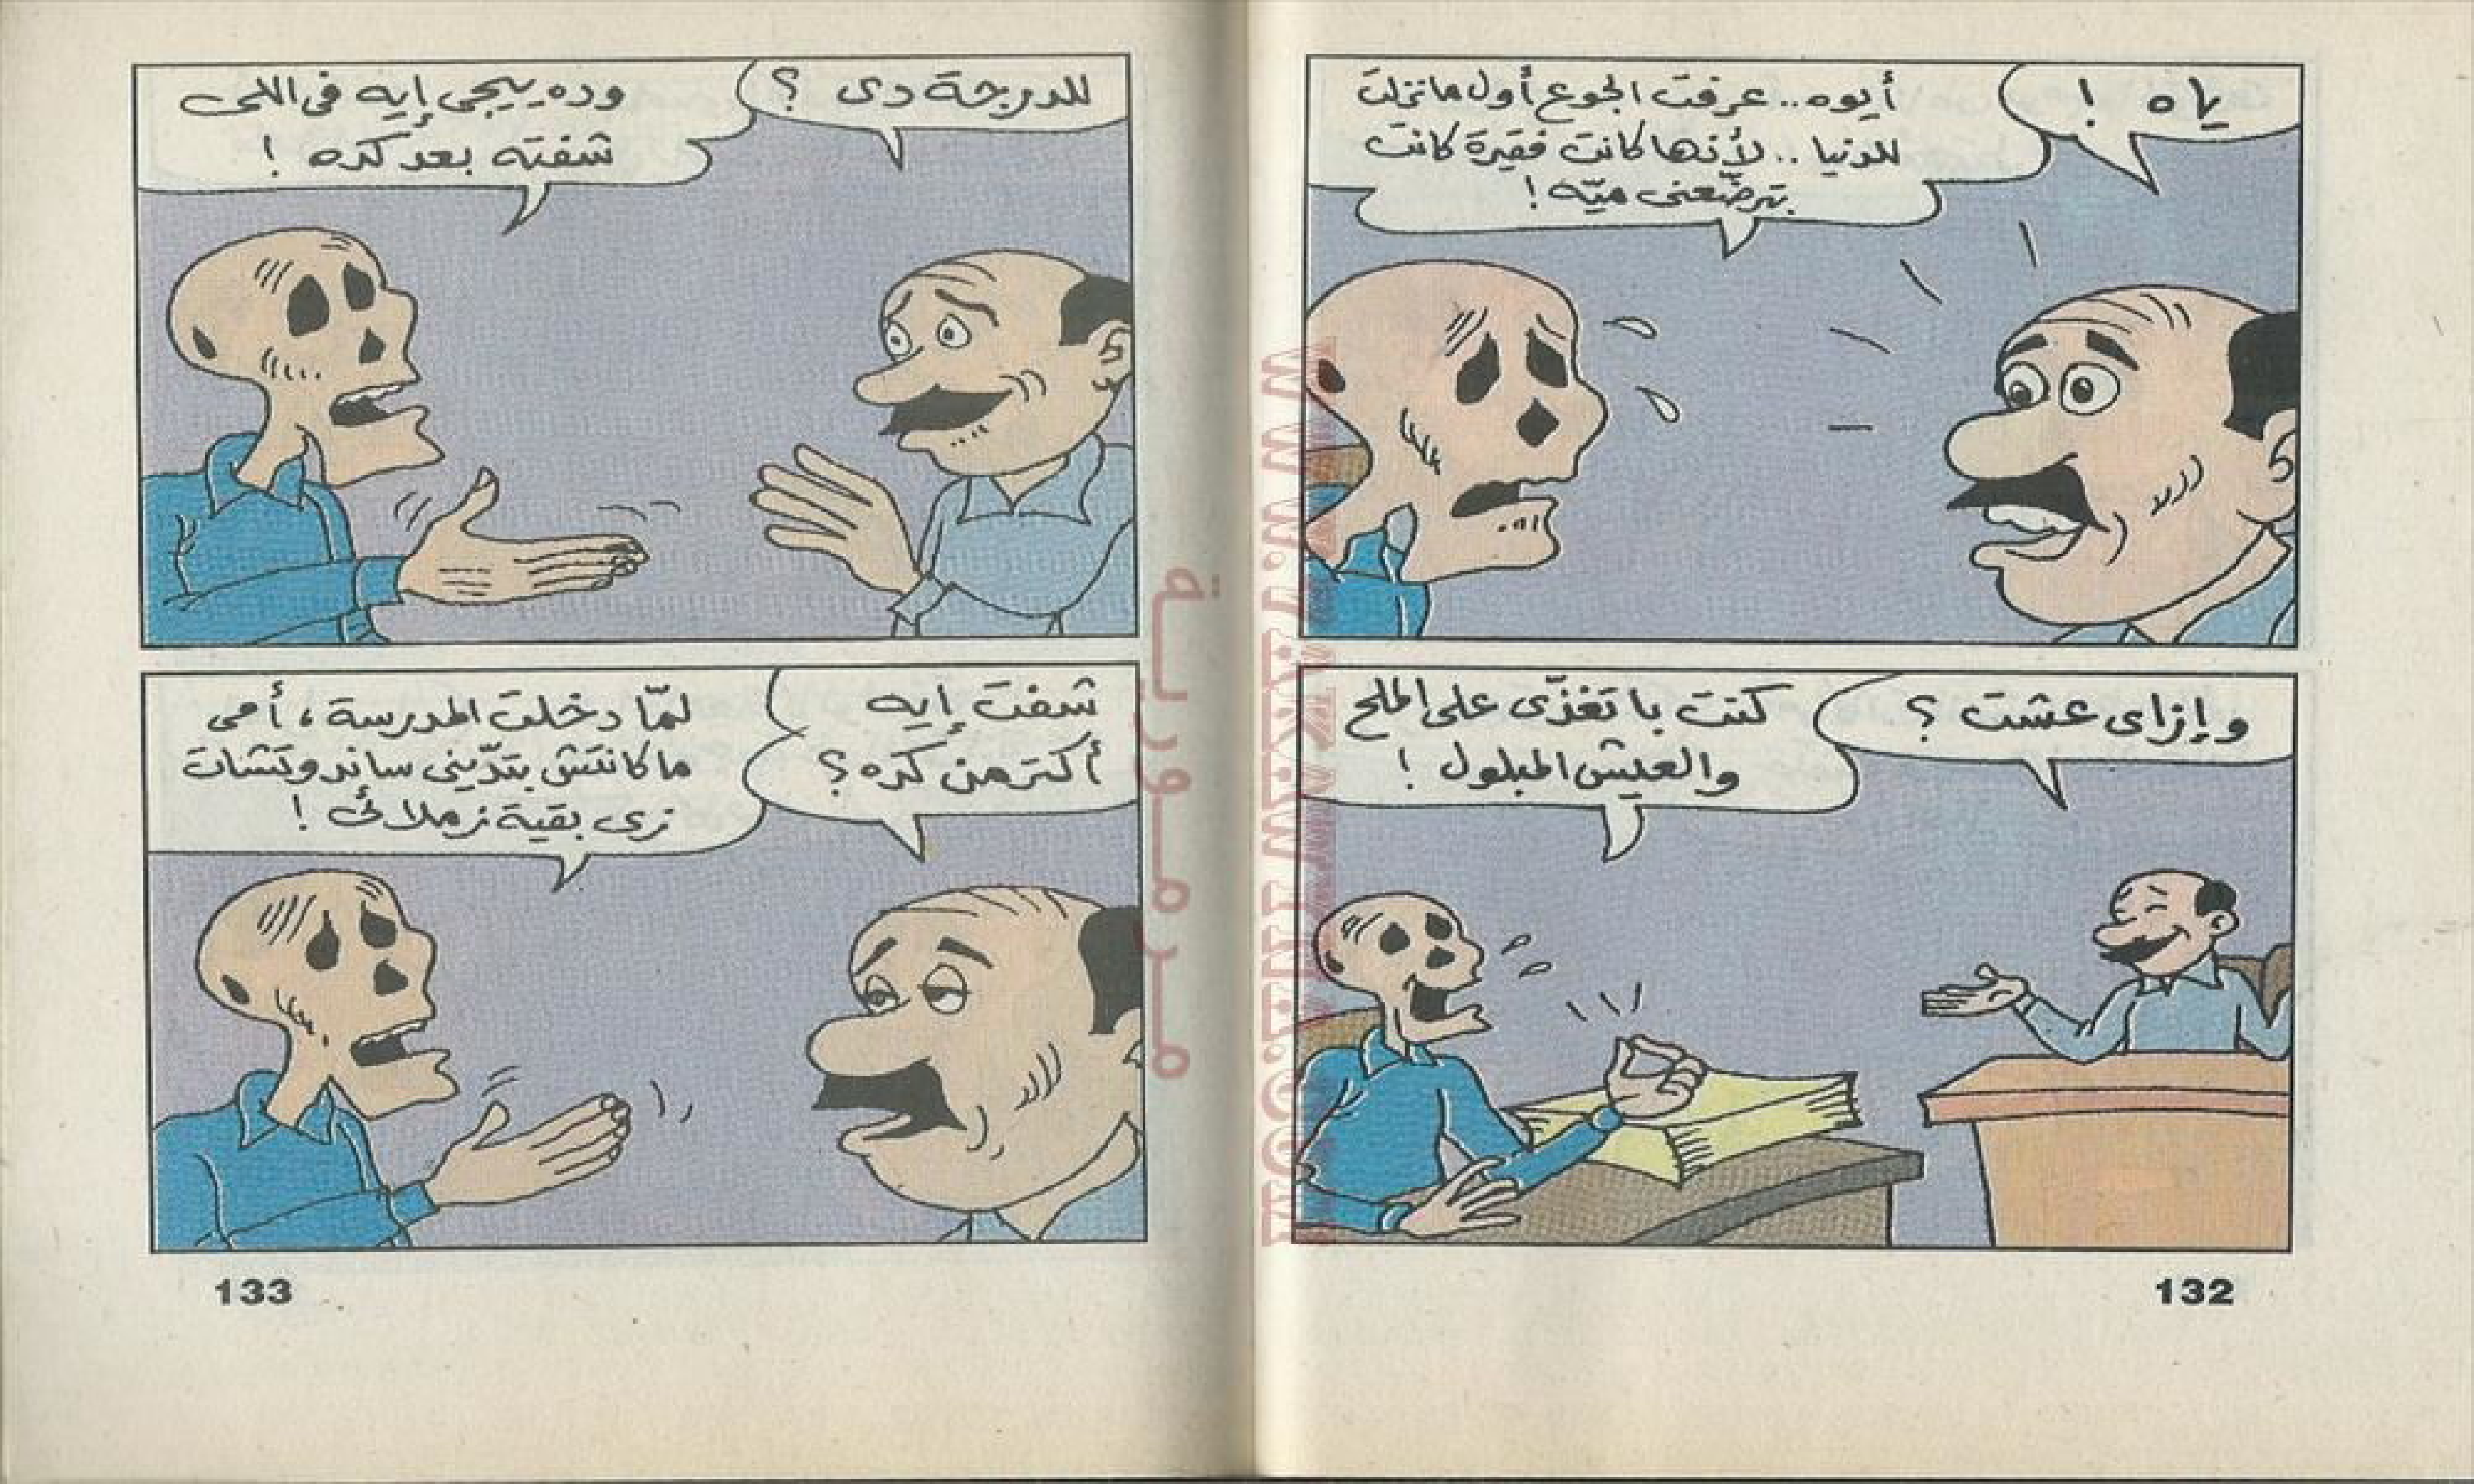 ياه !
أيوه.. عرفت الجوع أول ما نزلت
للدنيا .. لأنها كانت فقيرة كانت
بترضّعنى ميّه !
وإزاى عشت ؟
كنت باتغذّى على الملح
والعيش المبلول !
132
للدرجة دى ؟
وده ييجى إيه فى اللى
شفته بعد كده !
شفت إيه
أكتر من كده ؟
لمّا دخلت المدرسة ، أمى
ما كانتش بتدّينى ساندوتشات
زى بقية زملائى !
133
مرمورية